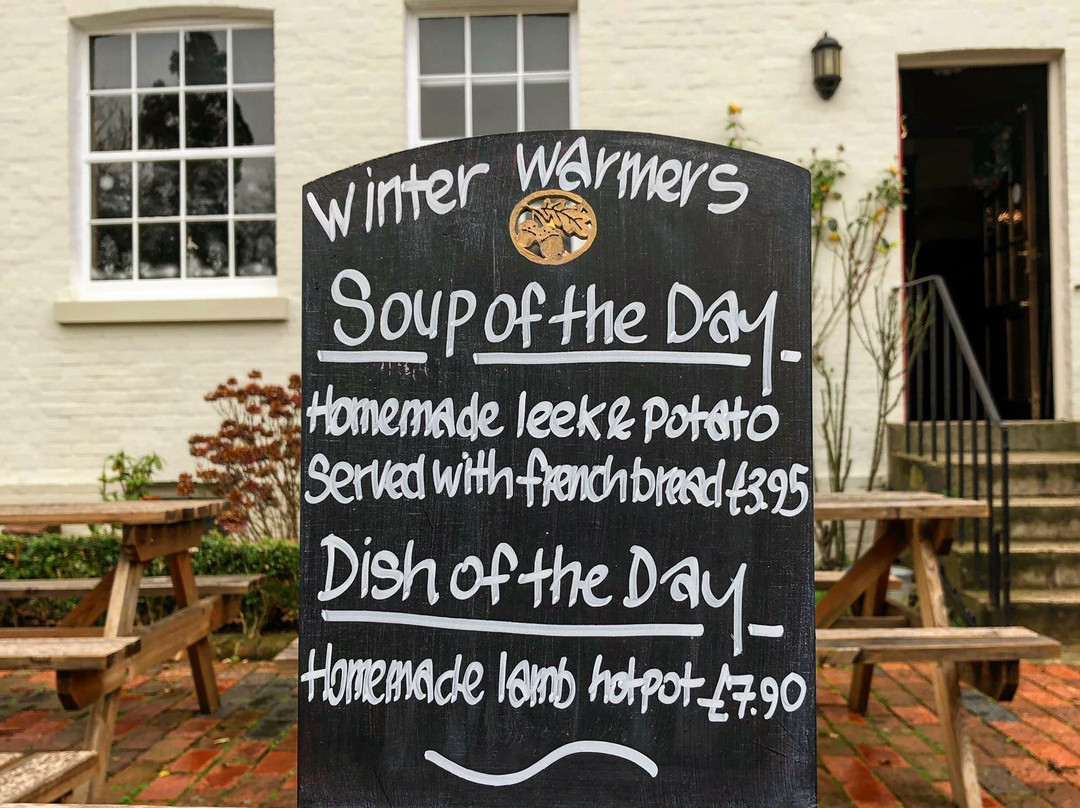 Winter Warmers
Soup of the Day
Homemade leek & Potato
Served with french bread £3.95
Dish of the Day
Homemade lamb hotpot £7.90